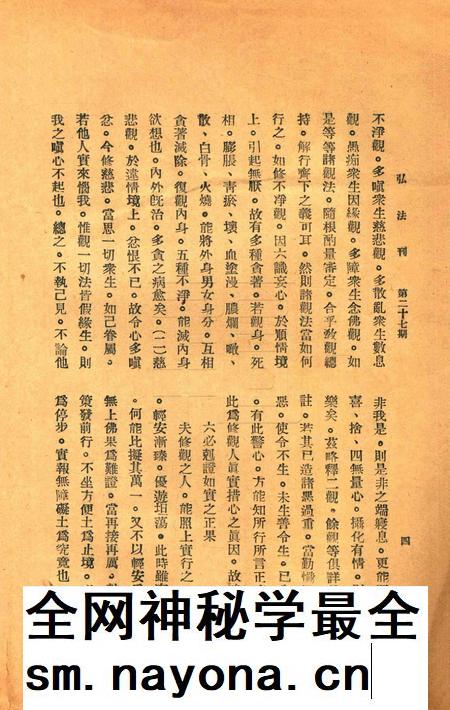 弘法刊 第二十七期 四
不淨觀。多嗔衆生慈悲觀。多散亂衆生數息
觀。愚痴衆生因緣觀。多障衆生念佛觀。如
是等等諸觀法。隨根酌量審定。合乎敎觀總
持。解行齊下之義可耳。然則諸觀法當如何
行之。如修不淨觀。因六識妄心。於順情境
上。引起無厭。故有多種貪著。若觀身。死
相。膨脹、靑瘀、壞、血塗漫、膿爛、噉、
散、白骨、火燒。能將外身男女身分。互相
貪著滅除。復觀內身。五種不淨。能滅內身
欲想也。內外旣治。多貪之病愈矣。(二)慈
悲觀。於違情境上。忿恨不已。故令心多嗔
忿。今修慈悲。當思一切衆生。如己眷屬。
若他人實來惱我。惟觀一切法皆假緣生。則
我之嗔心不起也。總之。不執己見。不論他
非我是。則是非之端寢息。更能
喜、捨、四無量心。攝化有情。
樂矣。茲略釋二觀。餘觀等俱詳
註。若其已造諸罪過重。當勤懺
惡。使令不生。未生善令生。已
。有此警心。方能知所行所言正
此爲修觀人眞實措心之眞因。故
六必剋證如實之正果
夫修觀之人。能照上實行之
。輕安漸臻。優遊坦蕩。此時雖
。何能比擬其萬一。又不以輕安
無上佛果爲難證。當再接再厲。
策發前行。不坐方便土爲止境。
爲停步。實報無障礙土爲究竟也
全网神秘学最全
sm.nayona.cn